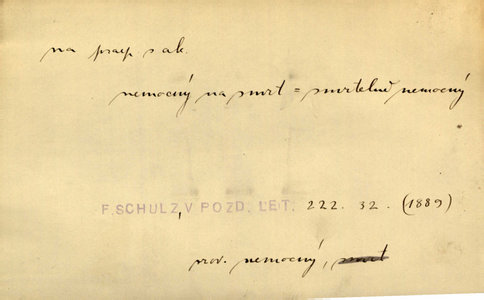 na praep. s ak.
nemocný na smrt = smrtelně nemocný
F. SCHULZ, V POZD. LET. 222. 32. (1889)
srov. nemocný, smrt